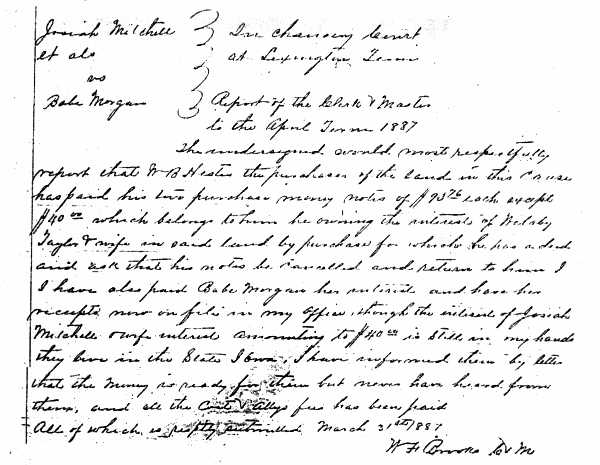 Josiah Mitchell
et als
vs
Babe Morgan
In chancery Court
at Lexington Tenn
Report of the Clerk & Master
to the April Term 1887
The undersigned would most respectfully
report that W B Hester the purchaser of the land in this cause
has paid his two purchase money notes of $93 76 each except
$40 00 which belongs to him he owning the interest of
Taylor & wife in said land by purchase for which he has a deed
and ask that his notes be cancelled and return to him I
I have also paid Babe Morgan her interest and have her
receipts now on file in my office, though the interest of Josiah
Mitchell & wife interest amounting to $40 00 is still in my hands
they live in the State Iowa, I have informed them by letter
that the money is ready for them but never have heard from
them, and all the Cost & Attys fees has been paid
All of which is resptly submitted March 31st 1887
W F Brooks C & M